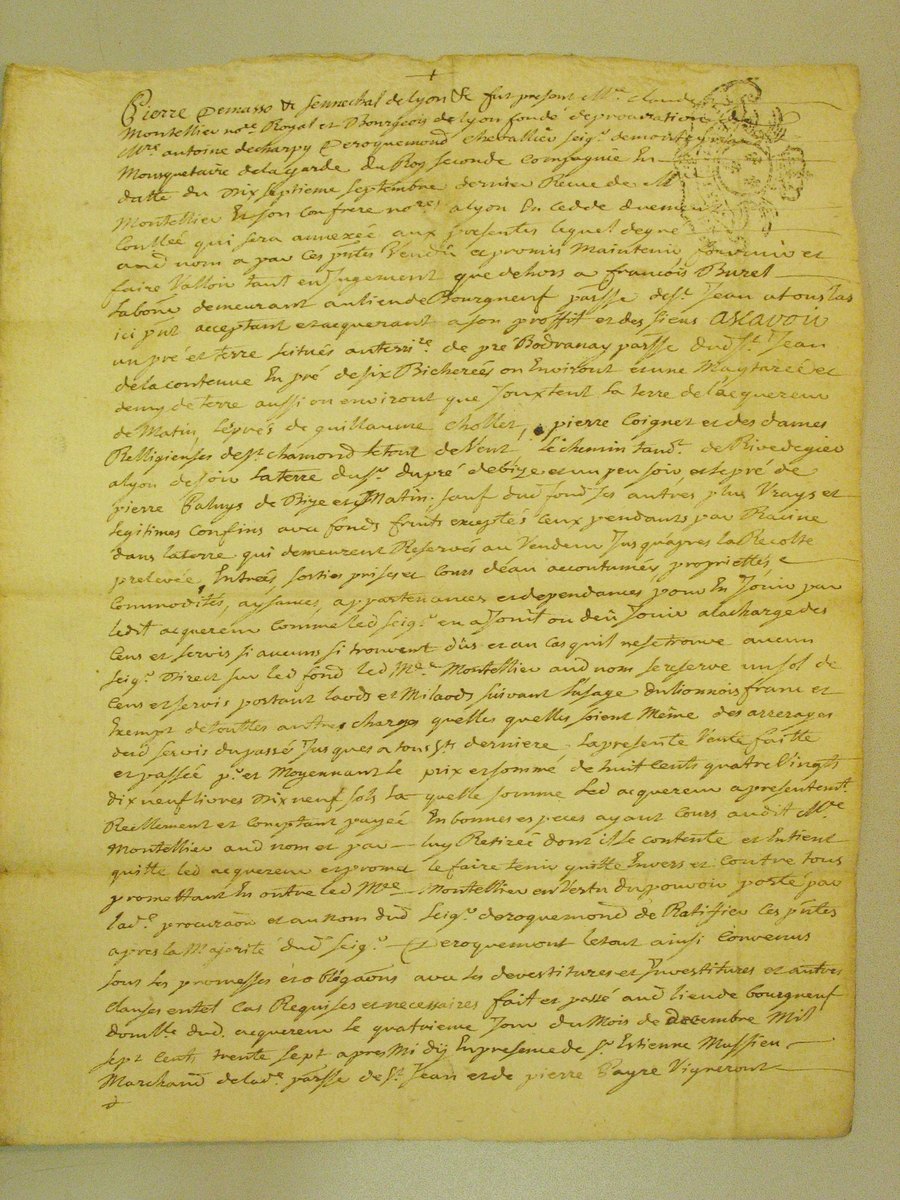 Pierre Demasso & Sennechal de lyon &c fut present Mre. Claude
Montellier nore. Royal et Bourgeois de lyon fondé de procuration de
Mre. antoine de charpy De roquemond Chevallier seigr.
Mousquetaire de la garde du Roy seconde Compagnie En
datte du Dix septieme septembre dernier Reçue de M
Montellier Et son confrere nores. a lyon En cedde duement
Conllée qui sera annexée aux presentes lequel de gré
aud nom a par ces pntes Vendu et promis Maintenir fournir et
faire Valloir tant en jugement que dehors a françois Buret
Labôr. demeurant au lieu de Bourgneuf parsse de st. Jean a tous las
ici pnt acceptant et acquerant a son proffit et des siens Ascavoir
un pré et terre scitués au terrire. de pré Bodranay parsse dud st. Jean
de la contenue En pré de six Bicherees ou Environt et une Maytereé et
demy de terre aussi ou environt que Jouxtent la terre de l'acquereur
de Matin, les prés de guillaume Chollet, pierre Coignet et des dames
Relligienses de st. chamond le tout de Vent, le chemin tand. de Rivedegier
a lyon de soir la terre du sr. dupré de bize et un peu soir et le pré de
pierre Paluys de Bize et Matin. sauf dud fond ses autres plus Vrays et
legitimes Confins avec fonds fruits exceptés ceux pendants par Racine
dans la terre qui demeurent Reservés au Vendeur Jusqu'apres la Recolte
prelevée, Entrées, sorties prises et Cours d'eau accoutumés, proprietté e
Commodités, aysances, appartenances et dependances pour En Jouir par
ledit acquereur Comme led seigr. en a Jouit ou deü Jouir a la charge des
Cens et servis si aucuns si trouvent dûs et au cas quil ne se trouve aucun
seigr. Direct sur led fond led Mre. Montellier aud nom se reserve un sol de
Cens et servis portant laods et Milaods suivant l'usage du lionnois franc et
Exempt de touttes autres charges quelles quelles soient Même des arrerages
dud servis du passé Jusques a tous sts. derniere. la presente Vente faitte
et passée pr. et Moyennant le prix et sommé de huit Cents quatre Vingts
dix neuf livres Dix neuf sols la quelle somme led acquereur a presentemt.
Reellement et comptant payeé En bonnes especes ayant Cours audit Mre.
Montellier aud nom et par luy Retirée dont il se contente et En tient
quitte led acquereur et promet le faire tenir quitte Envers et Contre tous
promettant En outre led Mre. Montellier en Vertu du pouvoir porté par
lade. procuraõn et au nom dud Seigr. de roquemond de Ratiffier Ces pntes
apres la Majorité dud seigr. De roquemont le tout ainsi Convenus
sous les promesses et obligaõns avec les devestitures et Investitures et autres
Clauses en tel Cas Requises et necessaires fait et passé aud lieu de bourgneuf
domlle. dud. acquereur le quatrieme Jour du Mois de Decembre Mil
sept Cents trente sept apres Midy En presence de sr. Estienne Massieu
Marchand de lade. parsse de st. Jean et de pierre Payre Vigneront